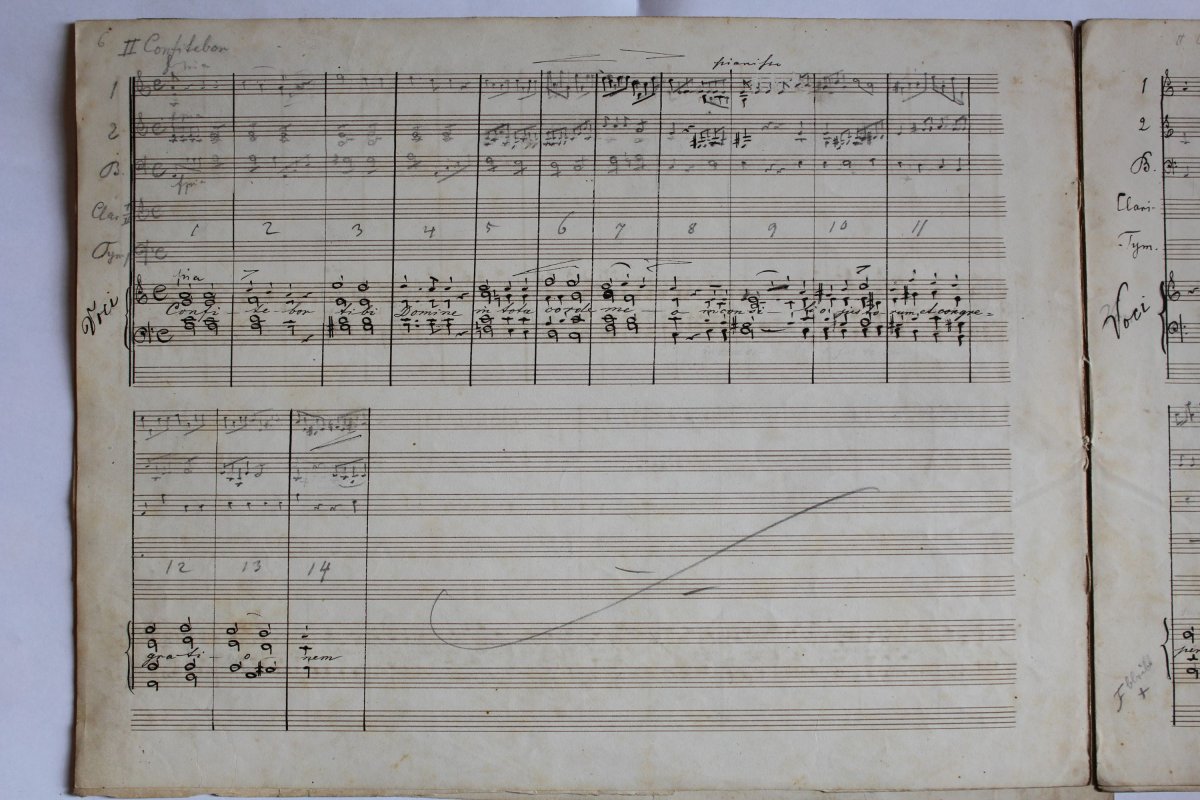 6 II Confitebor
pianissi
1
2
B.
Clar.
Tym.
1 2 3 4 5 6 7 8 9 10 11
pia
Voci
Confi - te - bor tibi Domine in tota corde me - o in consi - lio jus to rum et congre -
12 13 14
gra - ti - o - nem
1
2
B.
Clari-
Tym.
Voci
F bleibt
+